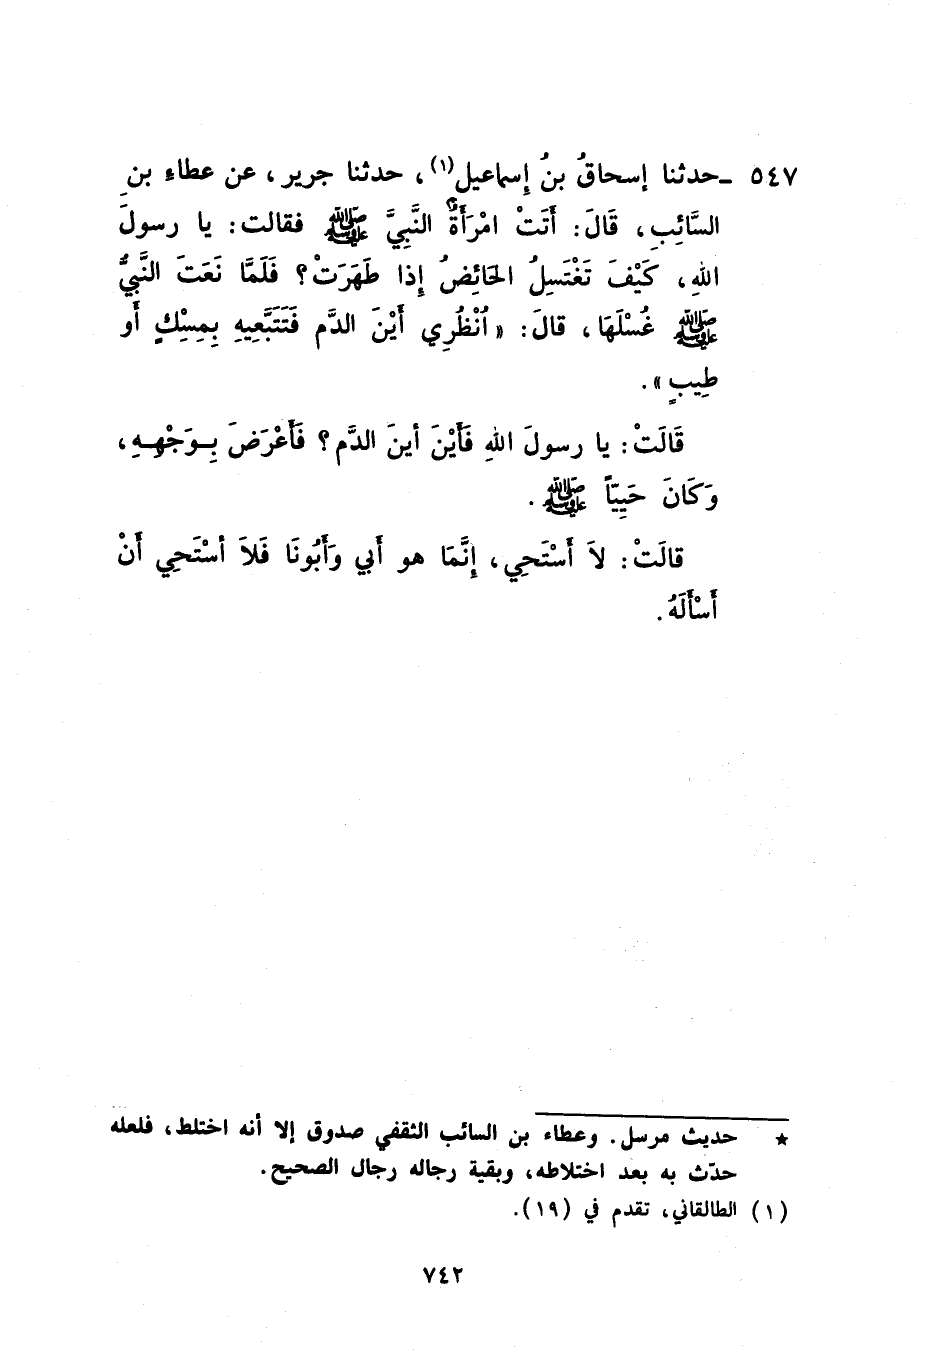 ٥٤٧ ـ حدثنا إسحاقُ بنُ إسماعيل(١)، حدثنا جرير، عن عطاء بنِ
السَّائِبِ، قَالَ: أَتَتْ امْرَأَةٌ النَّبِيَّ ﷺ فقالت: يا رسولَ
اللهِ، كَيْفَ تَغْتَسِلُ الحَائِضُ إِذا طَهَرَتْ؟ فَلَمَّا نَعَتَ النَّبِيُّ
ﷺ غُسْلَهَا، قالَ: «اُنْظُرِي أَيْنَ الدَّم فَتَتَبَّعِيهِ بِمِسْكٍ أَو
طِيبٍ».
قَالَتْ: يا رسولَ اللهِ فَأَيْنَ أينَ الدَّم؟ فَأَعْرَضَ بِـوَجْهِـهِ،
وَكَانَ حَيِيّاً ﷺ.
قالَتْ: لاَ أَسْتَحِي، إِنَّمَا هو أَبي وَأَبُونَا فَلاَ أسْتَحِي أَنْ
أَسْأَلَهُ.
★ حديث مرسل. وعطاء بن السائب الثقفي صدوق إلا أنه اختلط، فلعله
حدّث به بعد اختلاطه، وبقية رجاله رجال الصحيح.
(١) الطالقاني، تقدم في (١٩).
٧٤٢